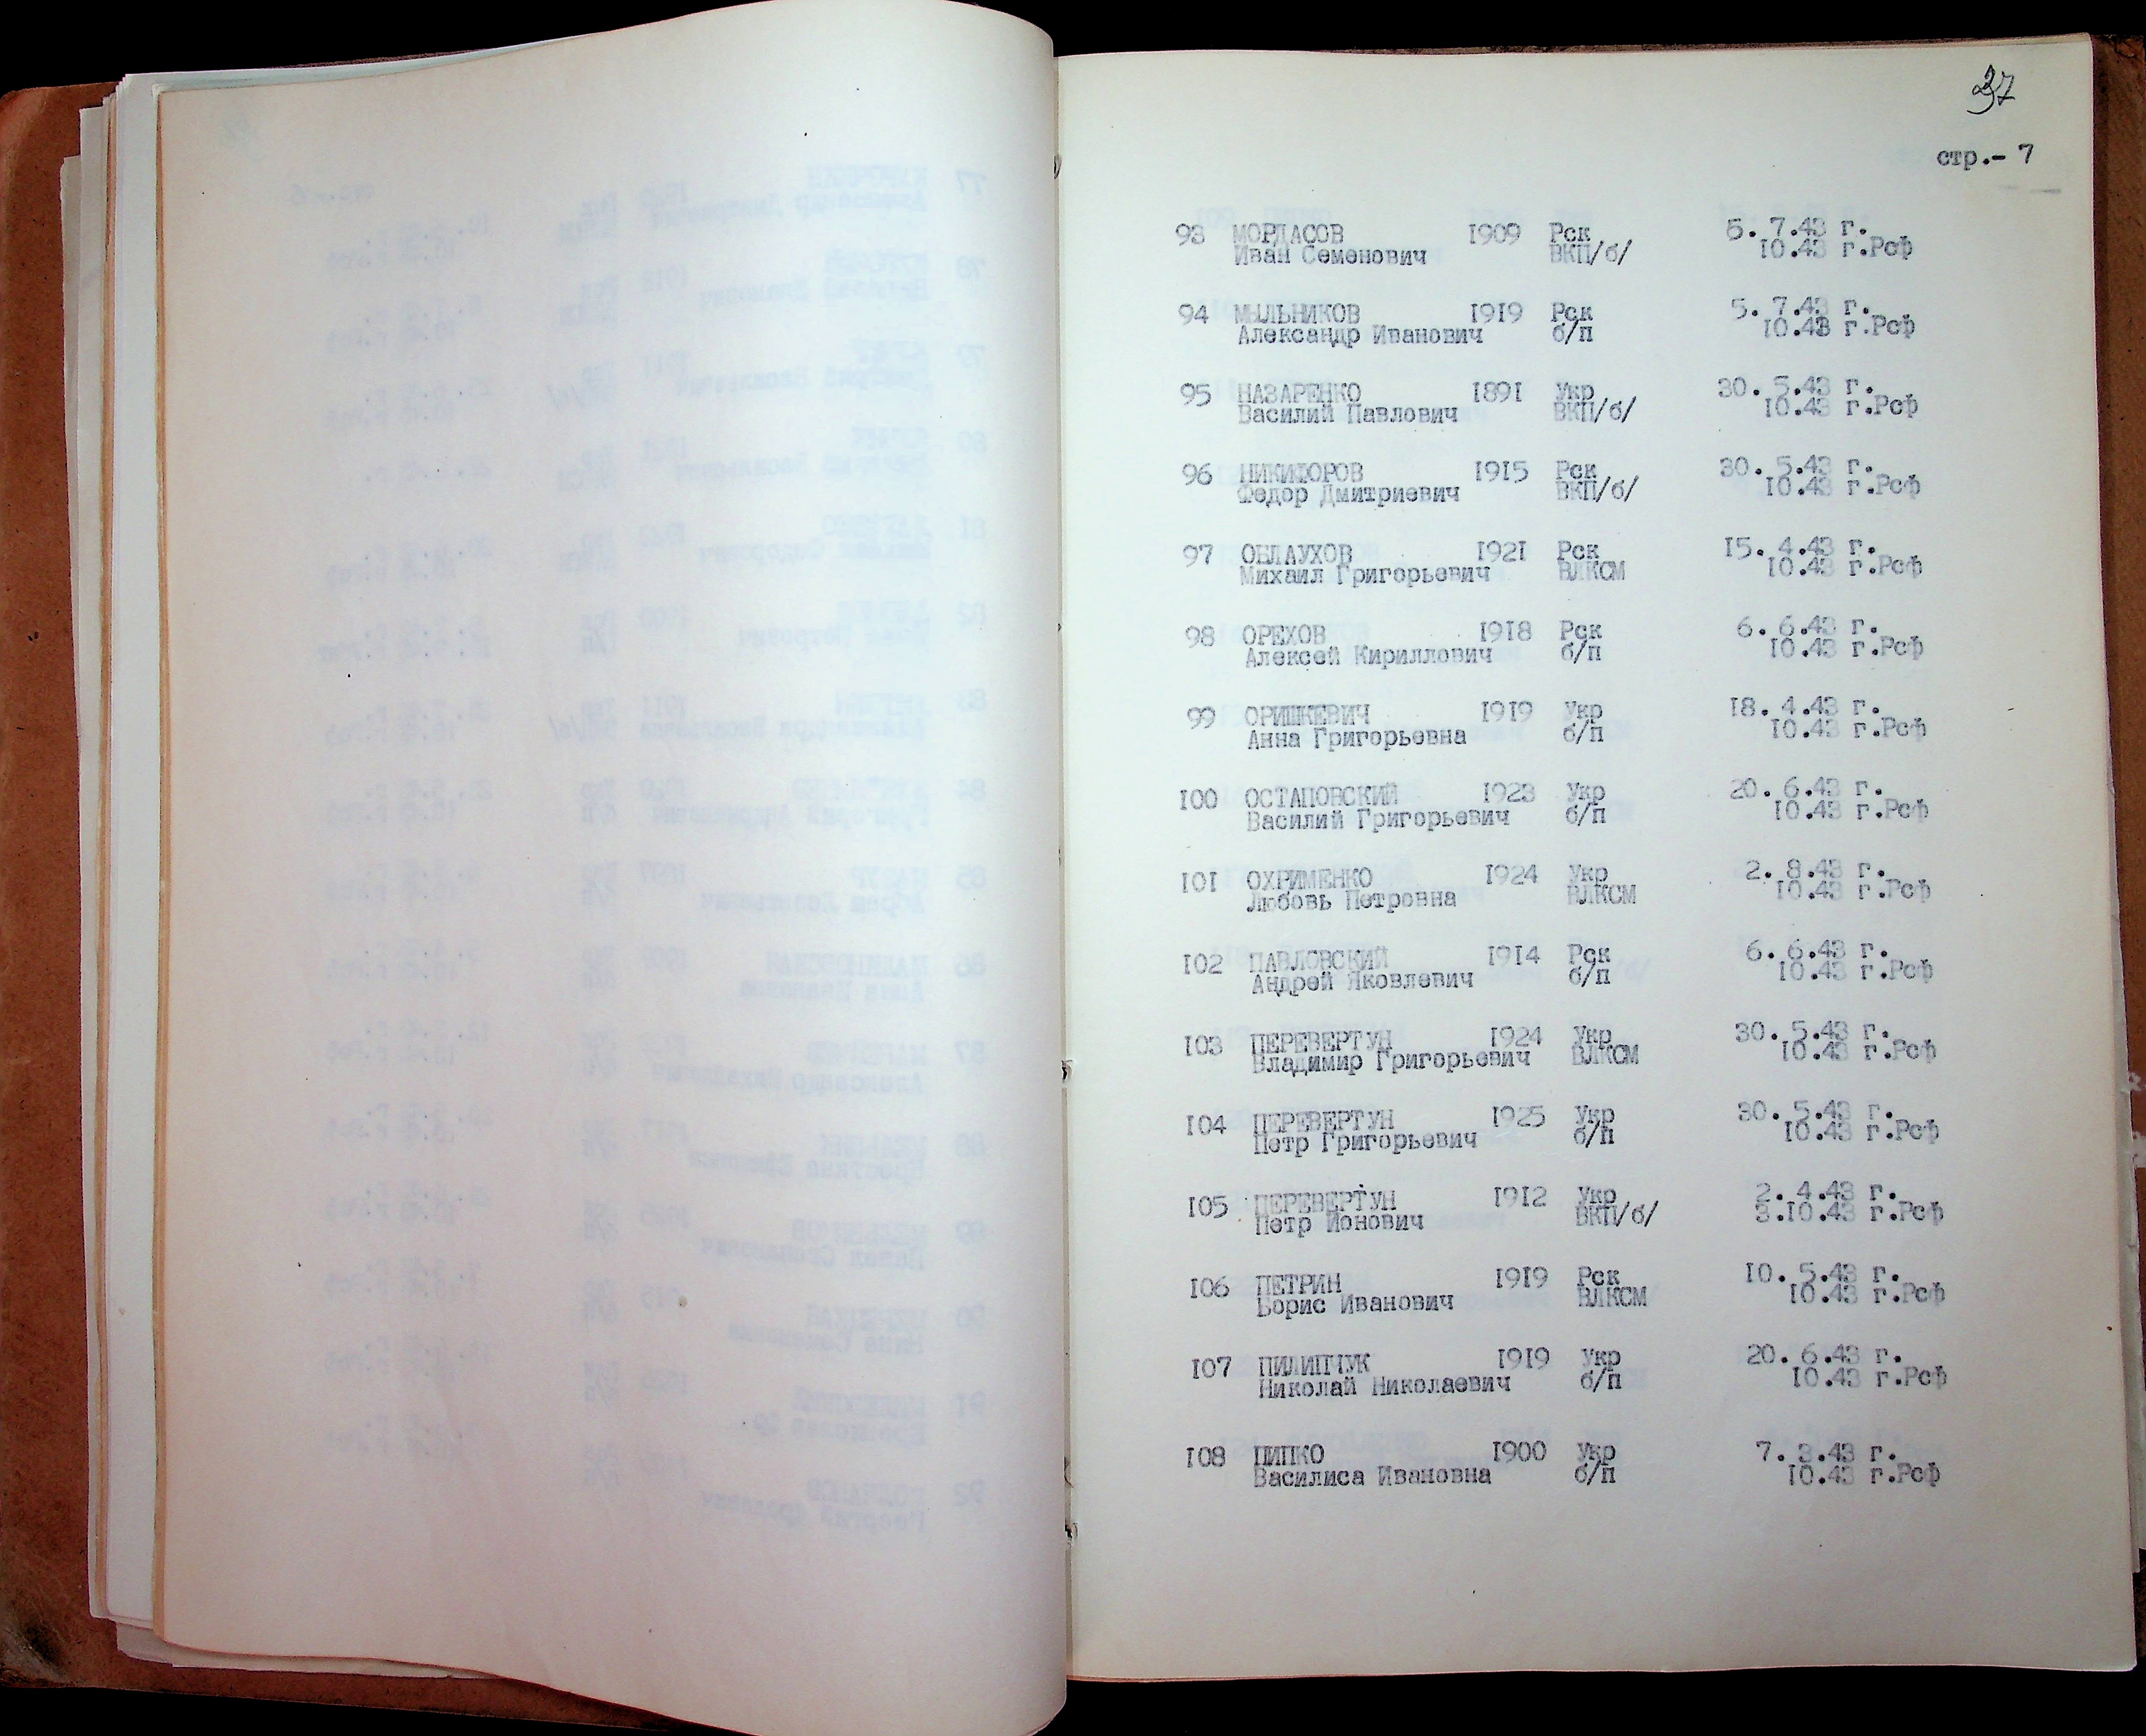 37
стр.- 7
93 МОРДАСОВ 1909 Рск 5. 7.43 г.
Иван Семенович ВКП/б/ 10.43 г.Рсф
94 МЫЛЬНИКОВ 1919 Рск 5. 7.43 г.
Александр Иванович б/п 10.43 г.Рсф
95 НАЗАРЕНКО 1891 Укр 30. 5.43 г.
Василий Павлович ВКП/б/ 10.43 г.Рсф
96 НИКИФОРОВ 1915 Рск 30. 5.43 г.
Федор Дмитриевич ВКП/б/ 10.43 г.Рсф
97 ОБЛАУХОВ 1921 Рск 15. 4.43 г.
Михаил Григорьевич ВЛКСМ 10.43 г.Рсф
98 ОРЕХОВ 1918 Рск 6. 6.43 г.
Алексей Кириллович б/п 10.43 г.Рсф
99 ОРИШКЕВИЧ 1919 Укр 18. 4.43 г.
Анна Григорьевна б/п 10.43 г.Рсф
100 ОСТАПОВСКИЙ 1923 Укр 20. 6.43 г.
Василий Григорьевич б/п 10.43 г.Рсф
101 ОХРИМЕНКО 1924 Укр 2. 8.43 г.
Любовь Петровна ВЛКСМ 10.43 г.Рсф
102 ПАВЛОВСКИЙ 1914 Рск 6. 6.43 г.
Андрей Яковлевич б/п 10.43 г.Рсф
103 ПЕРЕВЕРТУН 1924 Укр 30. 5.43 г.
Владимир Григорьевич ВЛКСМ 10.43 г.Рсф
104 ПЕРЕВЕРТУН 1925 Укр 30. 5.43 г.
Петр Григорьевич б/п 10.43 г.Рсф
105 ПЕРЕВЕРТУН 1912 Укр 2. 4.43 г.
Петр Йонович ВКП/б/ 3.10.43 г.Рсф
106 ПЕТРИН 1919 Рск 10. 5.43 г.
Борис Иванович ВЛКСМ 10.43 г.Рсф
107 ПИЛИПЧУК 1919 Укр 20. 6.43 г.
Николай Николаевич б/п 10.43 г.Рсф
108 ПИПКО 1900 Укр 7. 3.43 г.
Василиса Ивановна б/п 10.43 г.Рсф